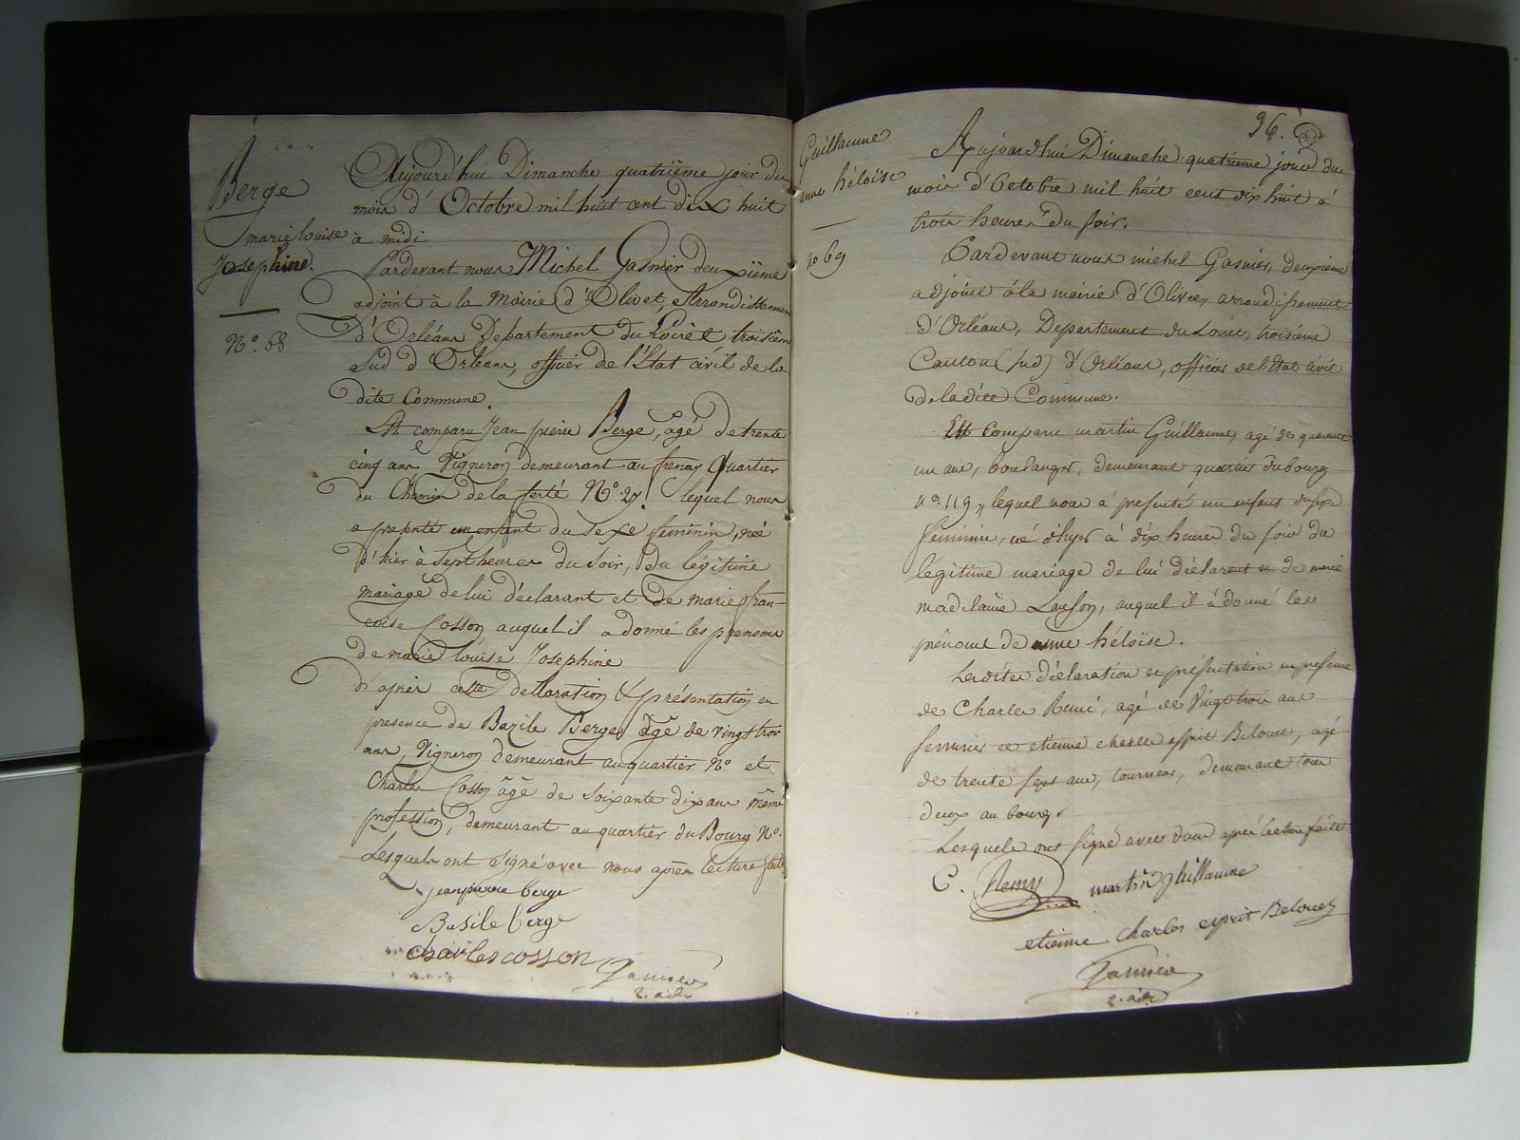 Berge
marie louise
Josephine.
N°. 68
Aujourd'hui Dimanche quatriëme jour du
mois d'Octobre mil huit cent dix huit
à midi
Pardevant nous Michel Gasnier deuxiëme
adjoint à la Mairie d'Olivet, Arrondissement
D'Orléans Département du Loiret troisiëm
Sud d'Orléans, officier de l'Etat civil de la
dite Commune.
Est comparu Jean pierre Berge, âgé de trente
cinq ans Vigneron demeurant au frenay Quartier
du Chemin de la ferté N° 27. lequel nous
a presenté un enfant du Sexe feminin, née
d'hier à Sept heures du Soir, du légitime
mariage de lui déclarant et de marie fran-
coise Cosson auquel il a donné les prenoms
de marie louise Josephine
D'après cette declaration & présentation en
presence de Bazile Berge âgé de Vingt trois
ans Vigneron demeurant au quartier N° et
Charles Cosson âgé de Soixante dix ans même
profession, demeurant au quartier du Bourg N°.
Lesquels ont Signé avec nous après lecture faite
jean pierre berge
Basile berge
charles cosson
Gasnier
2. adj
Guillaume
anne héloïse
N° 69
96.
Aujourd'hui Dimanche quatrieme jour du
mois d'Octobre mil huit cent dix huit à
trois heures du soir.
Pardevant nous michel Gasnier, deuxieme
adjoint à la mairie d'Olivet, arrondissement
d'Orléans, Departement du Loiret, troisieme
Canton (sud) d'Orléans, officier de l'Etat civil
de la dite Commune.
Est Comparu martin Guillaume, agé de quarante
un ans, boulanger, demeurant quartier du bourg
n° 119, lequel nous a presenté un enfant du sexe
feminin, né d'hyer à dix heures du soir du
légitime mariage de lui déclarant et de marie
madelaine, auquel il a donné les
prénoms de anne héloïse.
Lesdites déclaration et présentation en presence
de Charles Remi, agé de Vingt trois ans
et etienne charles esprit Belouet, agé
de trente sept ans, tourneur, demeurant tous
deux au bourg.
Lesquels ont signé avec nous après lecture faite
C. Remy martin ghillaume
etienne charles esprit Belouet
Gasnier
2. adj